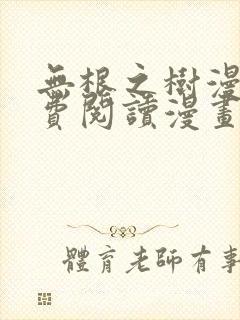 無根之樹漫
費閱讀漫畫
體育老師有事